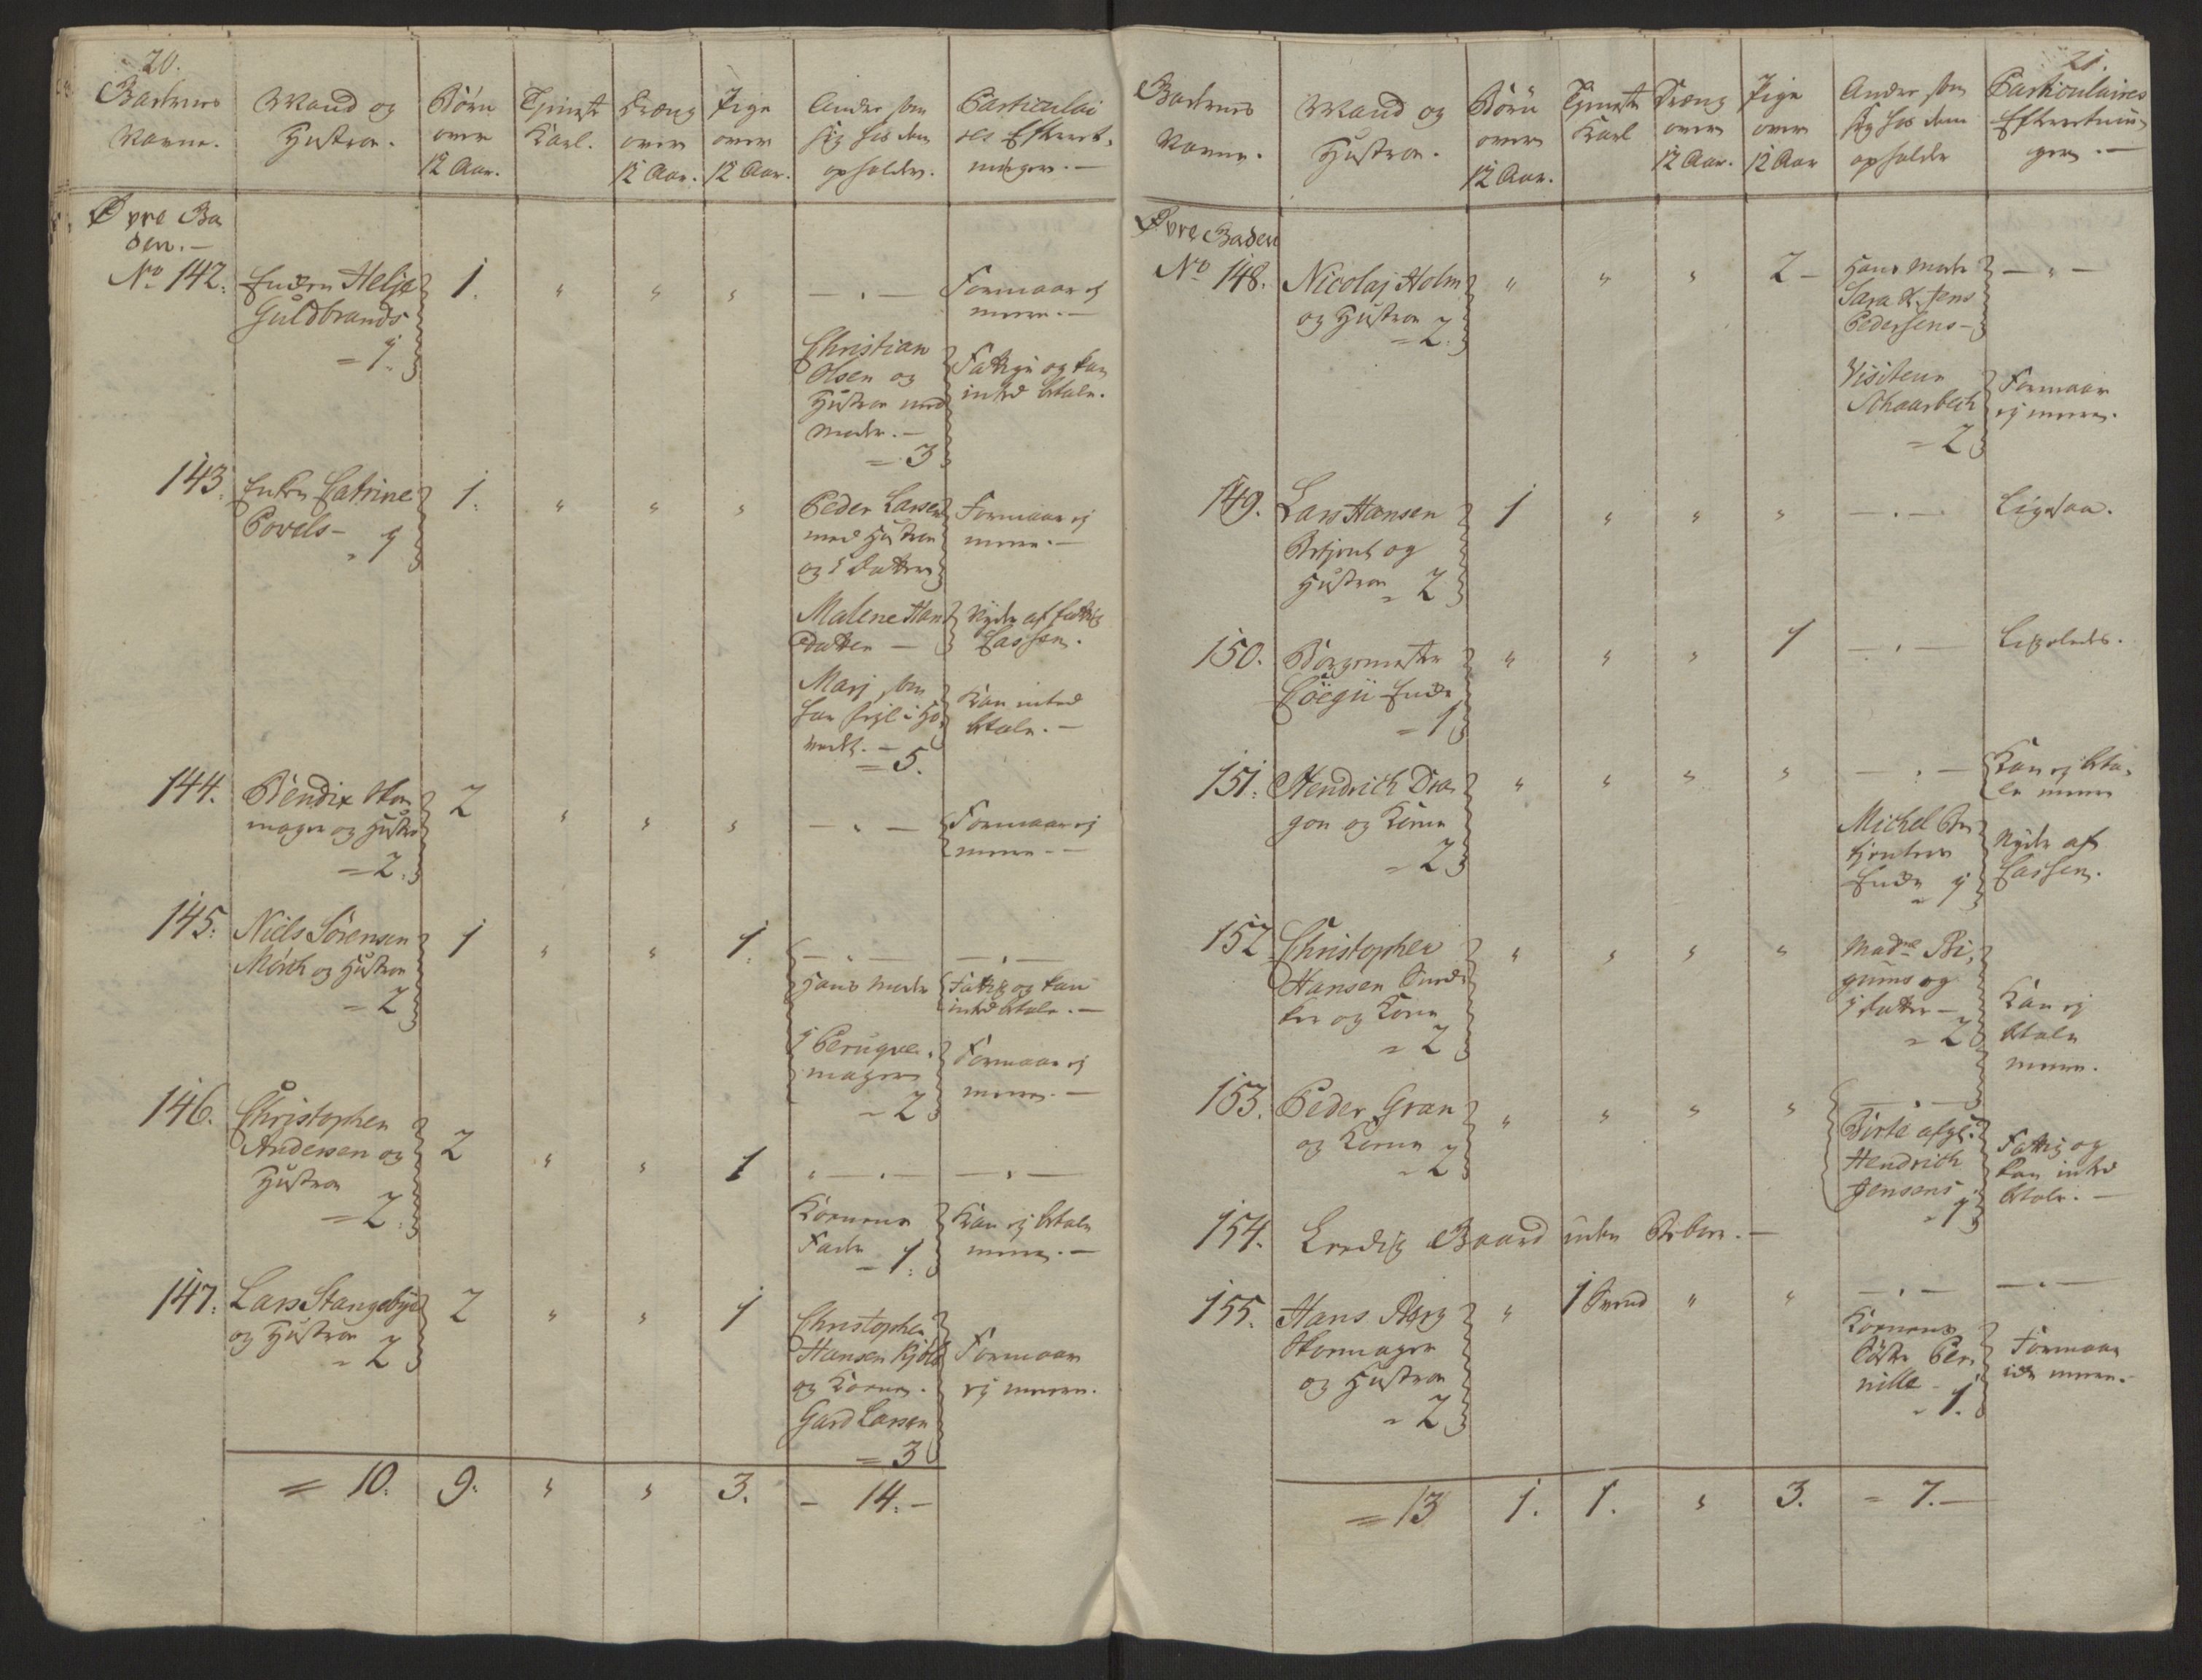 20.
Gadernes
Navne.
Mand og
Hustroe.
Børn
over
12 Aar.
Tjeneste
Karl.
Dreng
over
12 Aar.
Pige
over
12 Aar.
Andre som
sig hos dem
opholder.
Particulai
res Efterret-
ninger.—
Øvre Ga
den.—
No 142.
Enken Helje
Guldbrands
= 1.
1.
"
"
"
— " —
Formaar ej
meere.—
Christian
Olsen og
Hustroe med
Moder.—
= 3
Fattige og kan
intet betale.
143.
Enken Catrine
Povels—
" 1
1.
"
"
"
Peder Larsen
med Hustroe
og 1 Datter
Formaar ej
meere.—
Malene Hans
Datter —
Nyder af Fattig
Cassen.
Marj, som
= 5.
Kan intet
betale.—
144.
Bendix Skoe
mager og Hustroe
= 2.
2
"
"
"
— " —
Formaar ej
meere.—
145.
Niels Sörensen
Mörch og Hustroe
= 2
1
"
"
1.
— " —
— " —
Hans Moder
Fattig og kan
intet betale.—
1 Peruqve-
mager
= 2
Formaar ej
meere.—
146.
Christopher
Andersen og
Hustroe
= 2.
2
"
"
1
" — " —
— " —
Konens
Fader
= 1.
Kan ej betale
meere.—
147.
Lars Stangebye
og Hustroe
= 2
2
"
"
1
Christopher
Hansen Kjöld
og Konen.
Gard Larsen
= 3
Formaar
ej meere.
= 10. 9. " " 3. — 14.—
21.
Gadernes
Navne.
Mand og
Hustroe.
Børn
over
12 Aar.
Tjeneste
Karl
Dreng
over
12 Aar.
Pige
over
12 Aar
Andre som
sig hos dem
opholder
Particulaires
Efterretnin-
ger.—
Øvre Gaden
No 148.
Nicolaj Holm
og Hustroe
= 2.
"
"
"
2 —
Hans Moder
Sara Jens
Pedersens—
— " —
Visiteur
Schaarbech
= 2
Formaar
ej meere.
149.
Lars Hansen
Betjent og
Hustroe = 2
1
"
"
"
— " —
Ligesaa.
150.
Borgemester
Enke
= 1
"
"
"
1
— " —
Ligeledes.
151.
Hendrich Dra-
gon og Konen
= 2
"
"
"
"
— " —
Kan ej beta-
le meere
Michel Be-
tjentes
Enke 1
Nyder af
Cassen.
152
Christopher
Hansen Sned-
ker og Konen
= 2
"
"
"
"
Madme
og
1 Datter —
= 2
Kan ej
betale
meere.
153.
Peder Gran
og Konen
= 2
"
"
"
"
— " —
Birte afg:
Hendrich
Jensens
= 1
Fattig og
kan intet
betale.—
154.
Leedig Gaard uden Beboer.—
155.
Hans Berg
Skoemager
og Hustroe
= 2
"
1 Svend
"
"
— " —
— " —
Konens
Söster Per-
nille—
= 1.
Formaar
ikke meere.
= 13 1. 1. " 3. = 7.—